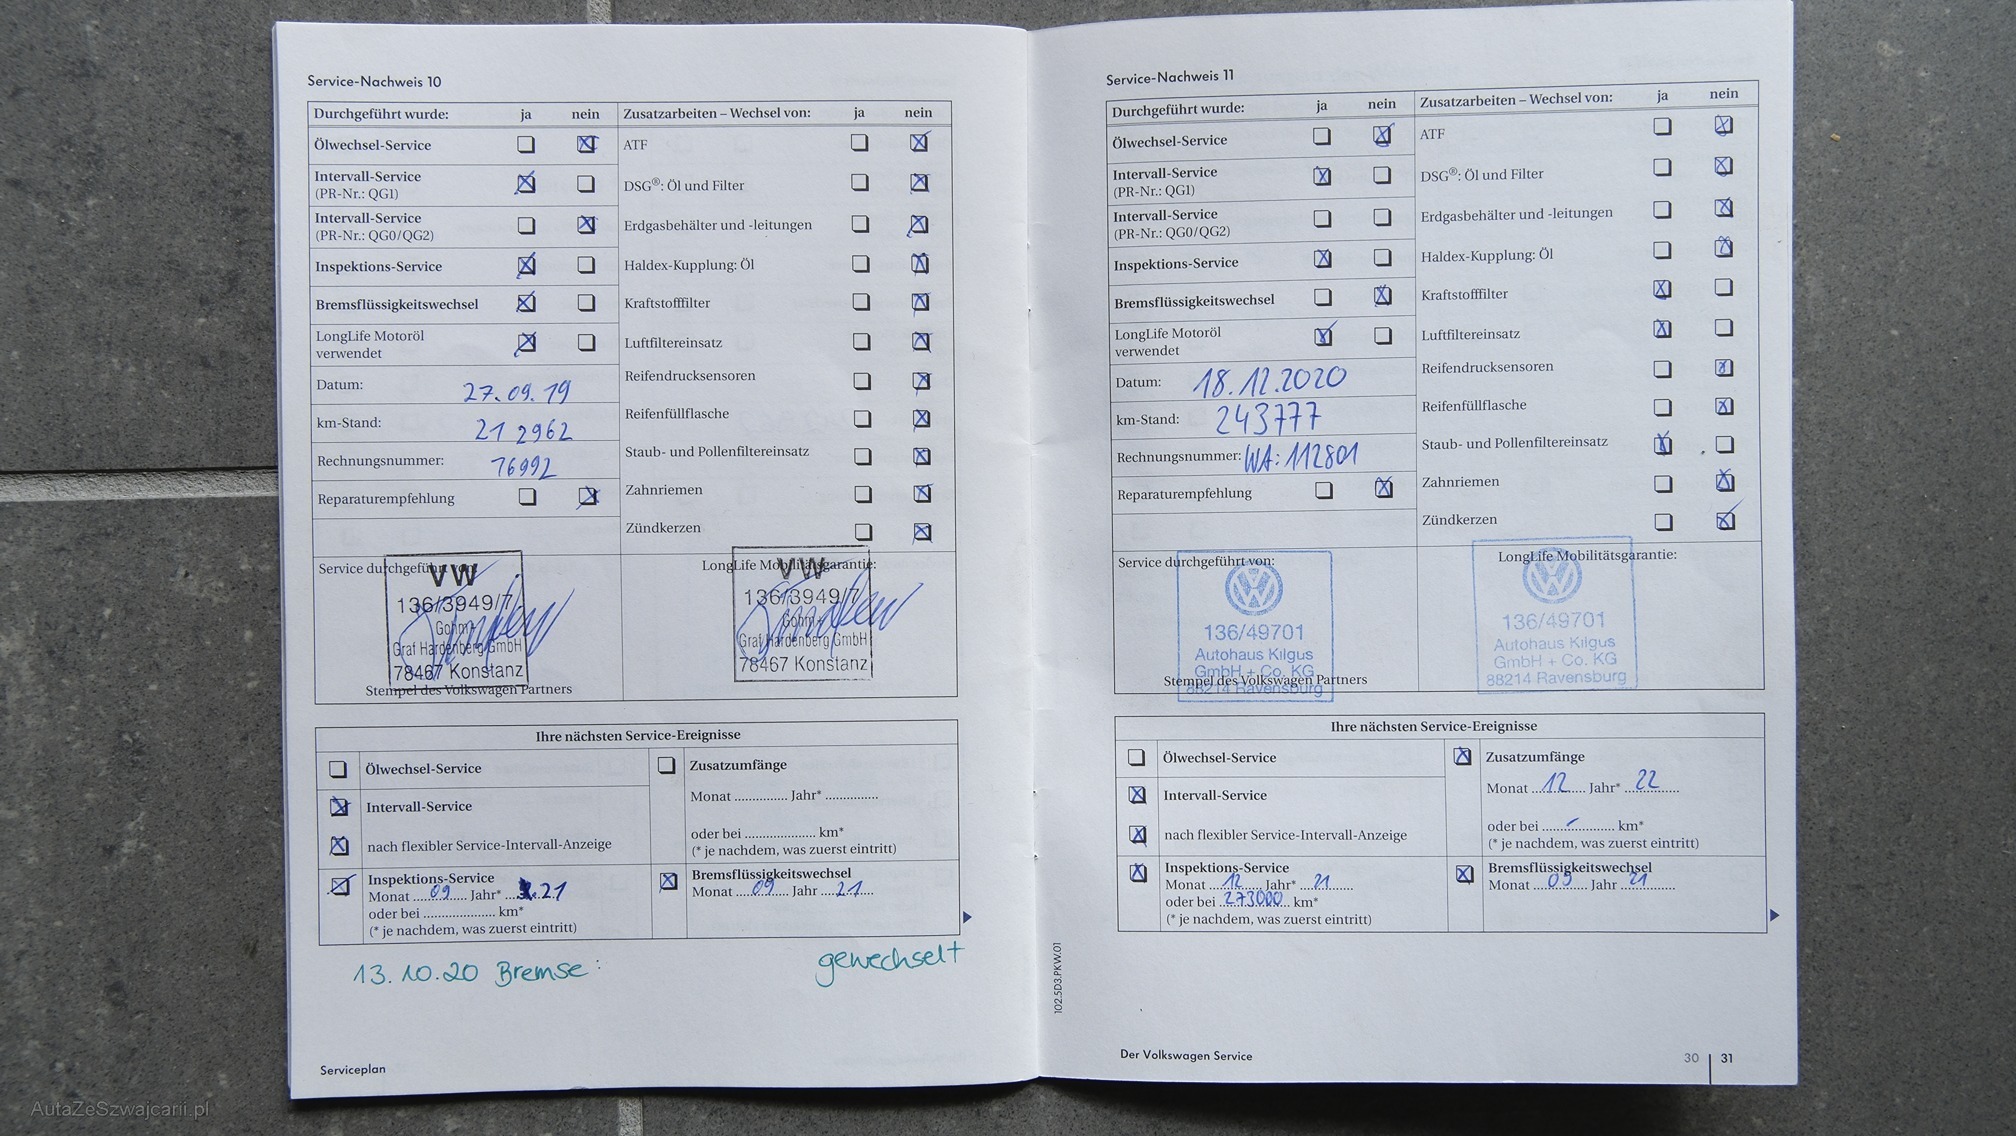 Service-Nachweis 10
Durchgeführt wurde: ja nein Zusatzarbeiten – Wechsel von: ja nein
Ölwechsel-Service
ATF
Intervall-Service
(PR-Nr.: QG1)
DSG®: Öl und Filter
Intervall-Service
(PR-Nr.: QG0/QG2)
Erdgasbehälter und -leitungen
Inspektions-Service
Haldex-Kupplung: Öl
Bremsflüssigkeitswechsel
Kraftstofffilter
LongLife Motoröl
verwendet
Luftfiltereinsatz
Datum: 27.09.19
Reifendrucksensoren
km-Stand: 212962
Reifenfüllflasche
Rechnungsnummer: 76992
Staub- und Pollenfiltereinsatz
Reparaturempfehlung
Zahnriemen
Zündkerzen
Service durchgeführt von:
VW
136/3949/7
Gohm+
Graf Hardenberg GmbH
78467 Konstanz
Stempel des Volkswagen Partners
LongLife Mobilitätsgarantie:
VW
136/3949/7
Gohm+
Graf Hardenberg GmbH
78467 Konstanz
Ihre nächsten Service-Ereignisse
Ölwechsel-Service
Intervall-Service
nach flexibler Service-Intervall-Anzeige
Inspektions-Service
Monat 09 Jahr* 21
oder bei .................... km*
(* je nachdem, was zuerst eintritt)
Zusatzumfänge
Monat .............. Jahr* ..............
oder bei .................... km*
(* je nachdem, was zuerst eintritt)
Bremsflüssigkeitswechsel
Monat 09 Jahr 21
13.10.20 Bremse: gewechselt
Serviceplan
Service-Nachweis 11
Durchgeführt wurde: ja nein Zusatzarbeiten – Wechsel von: ja nein
Ölwechsel-Service
ATF
Intervall-Service
(PR-Nr.: QG1)
DSG®: Öl und Filter
Intervall-Service
(PR-Nr.: QG0/QG2)
Erdgasbehälter und -leitungen
Inspektions-Service
Haldex-Kupplung: Öl
Bremsflüssigkeitswechsel
Kraftstofffilter
LongLife Motoröl
verwendet
Luftfiltereinsatz
Datum: 18.12.2020
Reifendrucksensoren
km-Stand: 243777
Reifenfüllflasche
Rechnungsnummer: WA: 112801
Staub- und Pollenfiltereinsatz
Reparaturempfehlung
Zahnriemen
Zündkerzen
Service durchgeführt von:
136/49701
Autohaus Kilgus
GmbH + Co. KG
88214 Ravensburg
Stempel des Volkswagen Partners
LongLife Mobilitätsgarantie:
136/49701
Autohaus Kilgus
GmbH + Co. KG
88214 Ravensburg
Ihre nächsten Service-Ereignisse
Ölwechsel-Service
Intervall-Service
nach flexibler Service-Intervall-Anzeige
Inspektions-Service
Monat 12 Jahr* 21
oder bei 273000 km*
(* je nachdem, was zuerst eintritt)
Zusatzumfänge
Monat 12 Jahr* 22
oder bei ....-.... km*
(* je nachdem, was zuerst eintritt)
Bremsflüssigkeitswechsel
Monat 09 Jahr 21
102.5D3.PKW.01
Der Volkswagen Service
30 | 31
AutaZeSzwajcarii.pl